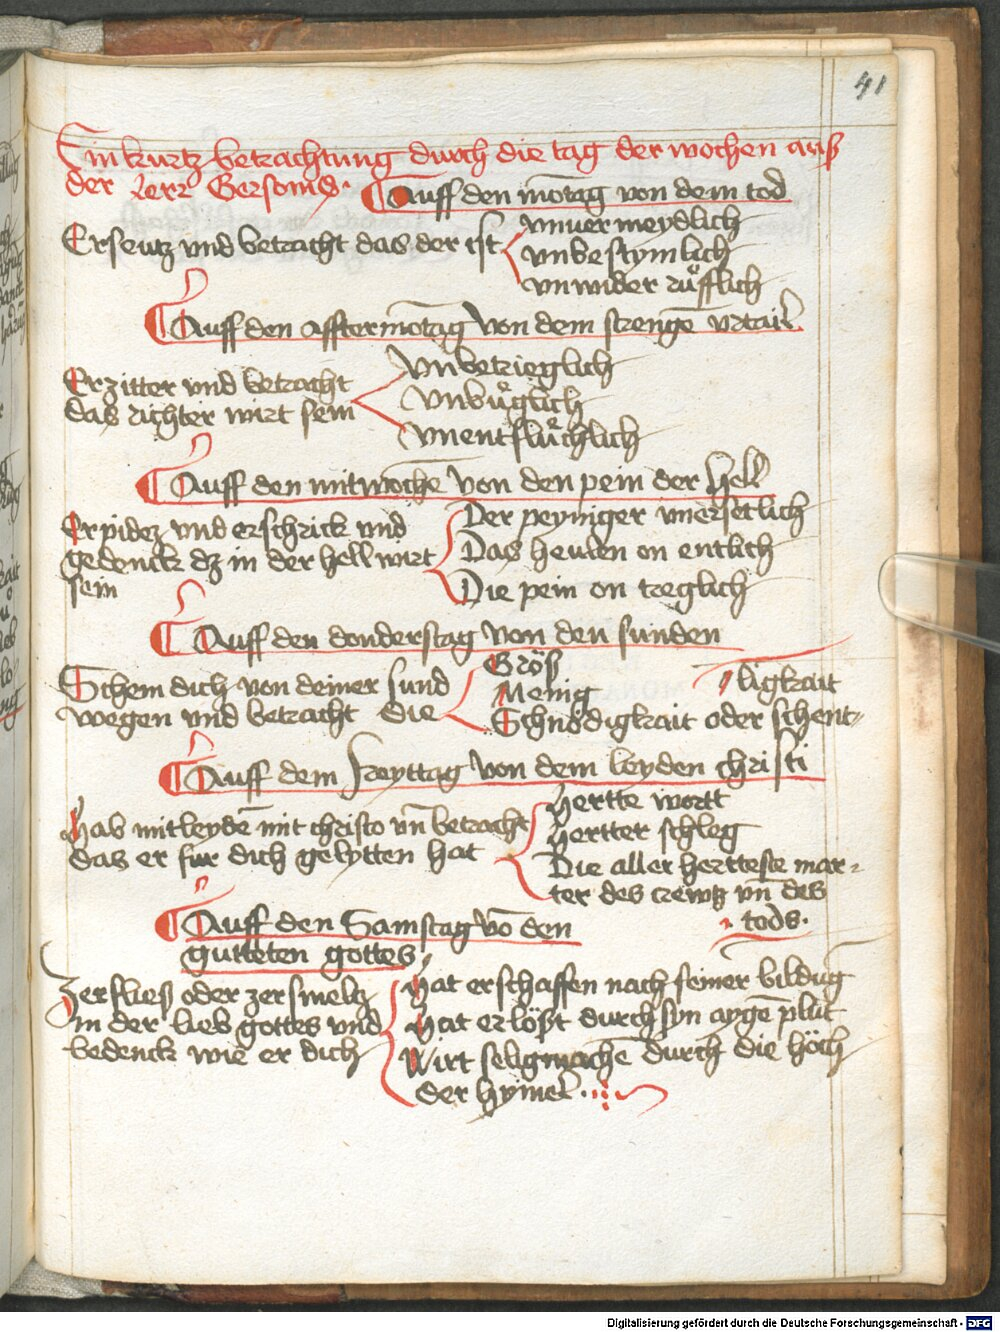 41
Ein kurtz betrachtung durch die tag der wochen auß
der lerr Gersonis. Auff den mōtag von dem tod
Erseutz vnd betracht das der ist
vnuermeydlich
vnbestymlich
vnwider rüfflich
Auff den afftermōtag von dem strengē vrtail
Erzitter vnd betracht
das richter wirt sein
Vnbetrieglich
Vnbüglich
Vnentflüchlich
Auff den mitwochē von den pein der hell
Erpidez vnd erschrick vnd
gedenck dz in der hell wirt
sein
Der peyniger vnersetlich
Das heulen on entlich
Die pein on treglich
Auff den donderstag von den sunden
Schem dich von deiner sund
wegen vnd betracht die
Größ
Menig
Schnödigkait oder schent-
ligkait
Auff dem freyttag von dem leyden christi
Hab mitleydē mit christo vn̄ betracht
das er fur dich gelytten hat
Hertte wortt
Hertter schleg
Die aller hertteste mar-
ter des crewtz vn̄ des
tods.
Auff den Samstag vō den
gutteten gottes
Zerflies oder zersmeltz
in der lieb gottes vnd
bedenck wie er dich
Hat erschaffen nach seiner bildūg
Hat erlöst durch syn aygē plut
Wirt selig machē durch die höch
der hymel.
Digitalisierung gefördert durch die Deutsche Forschungsgemeinschaft - DFG